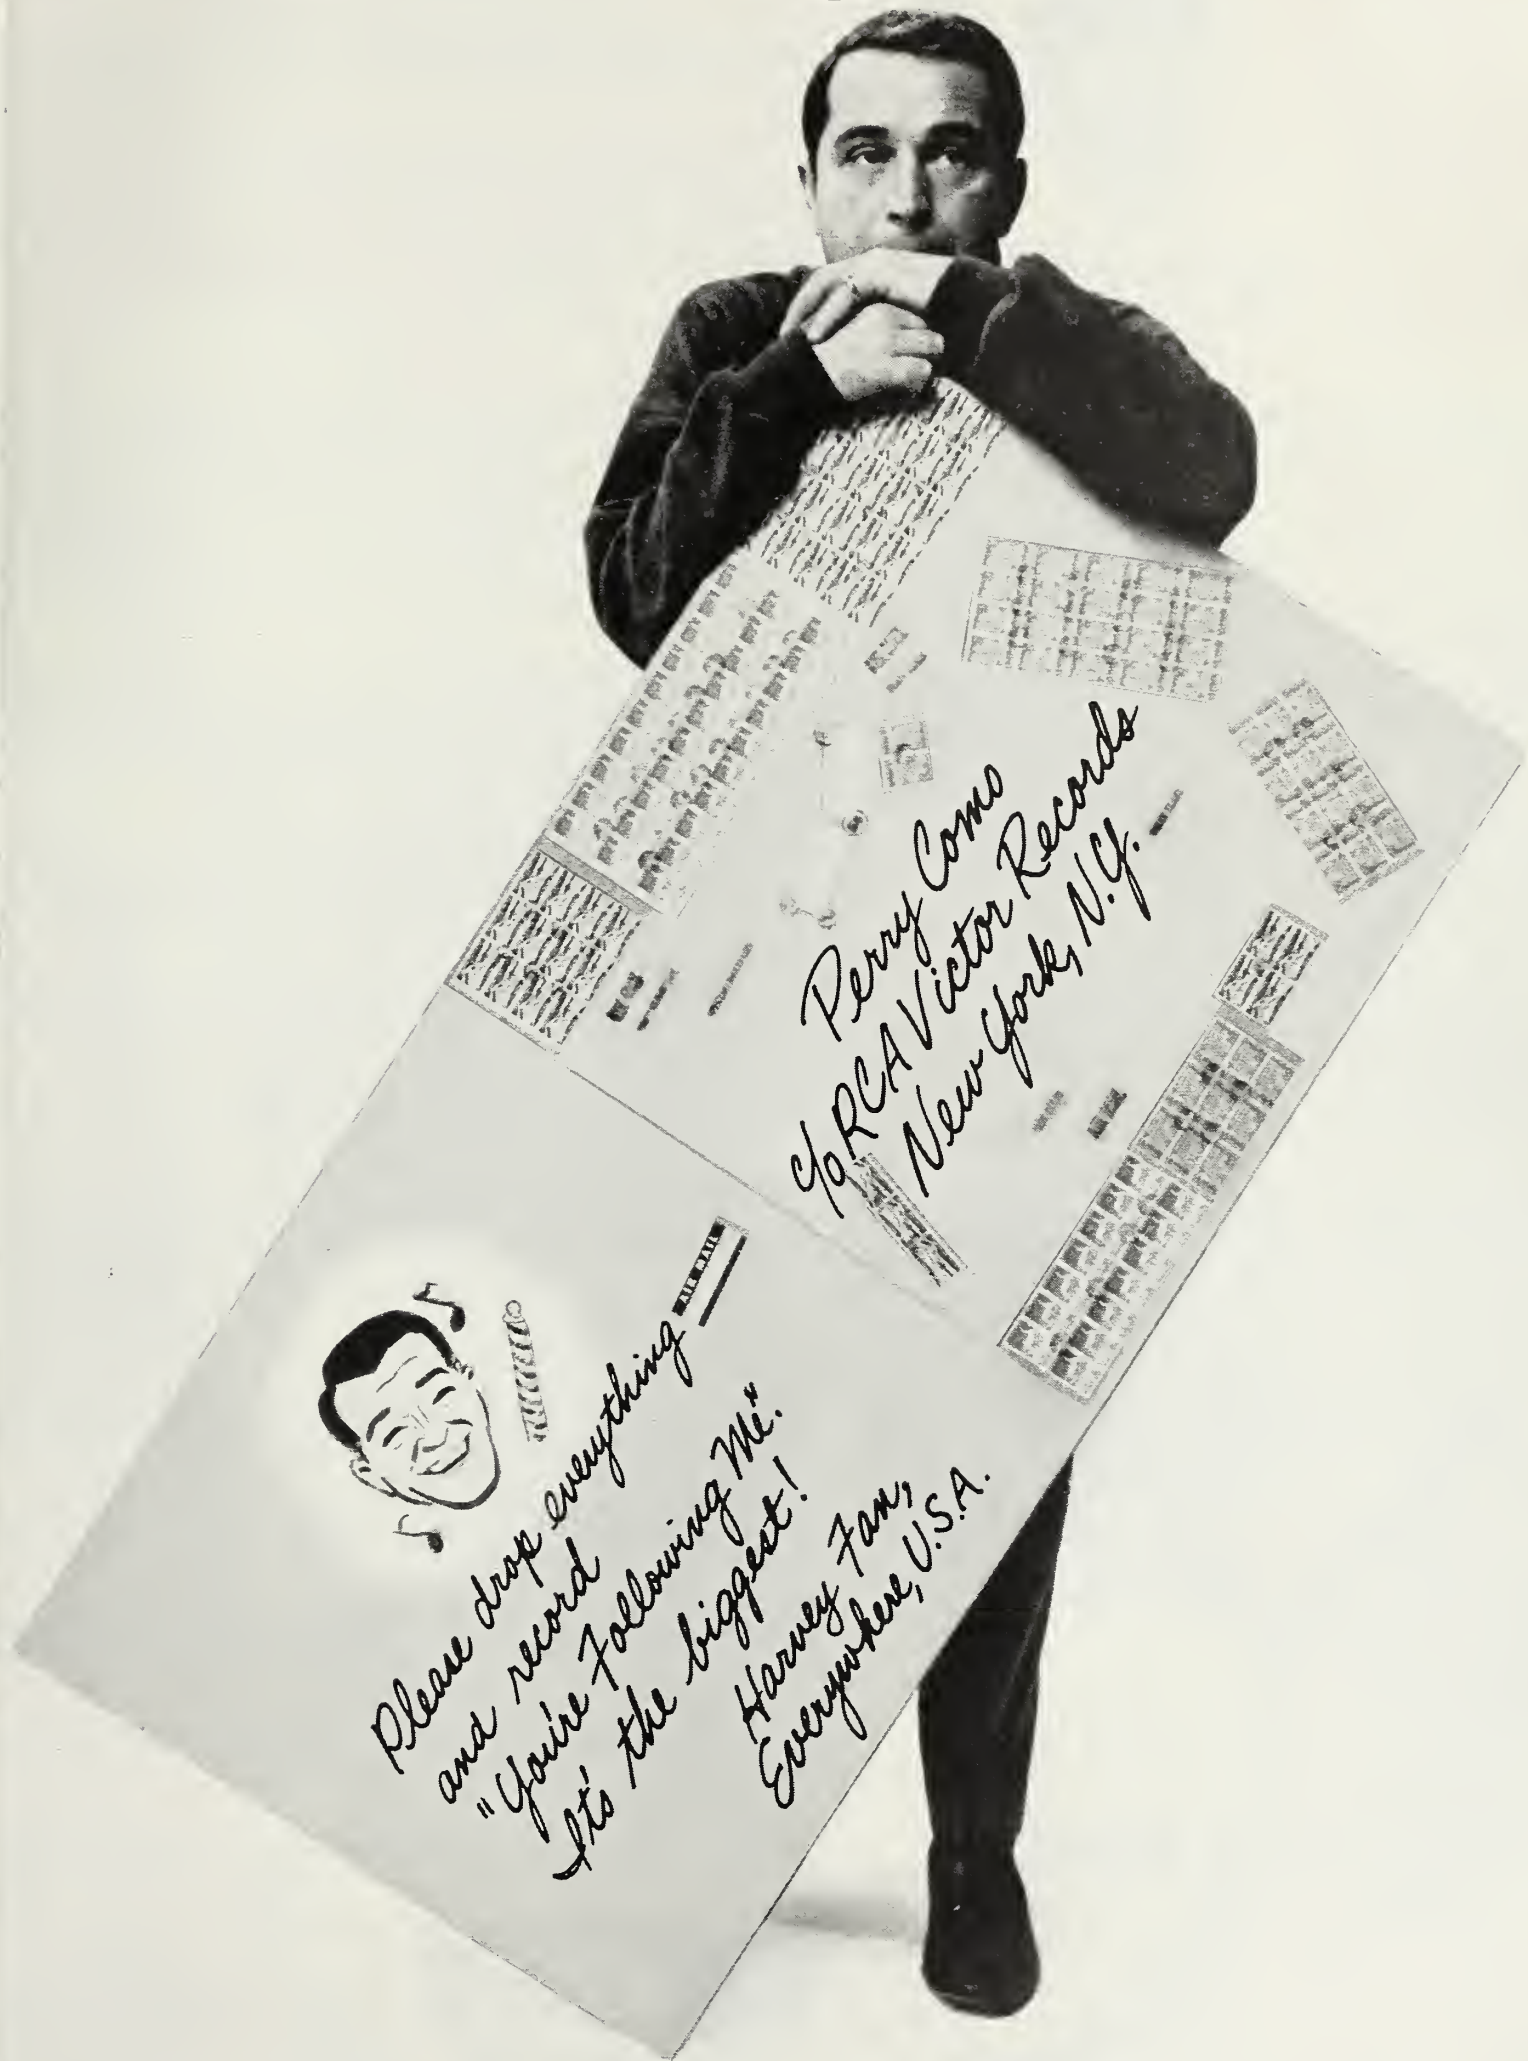 Perry Como
c/o RCA Victor Records
New York, N.Y.
AIR MAIL
Please drop everything
and record
"You're Following Me".
It's the biggest!
Harvey Fan,
Everywhere, U.S.A.